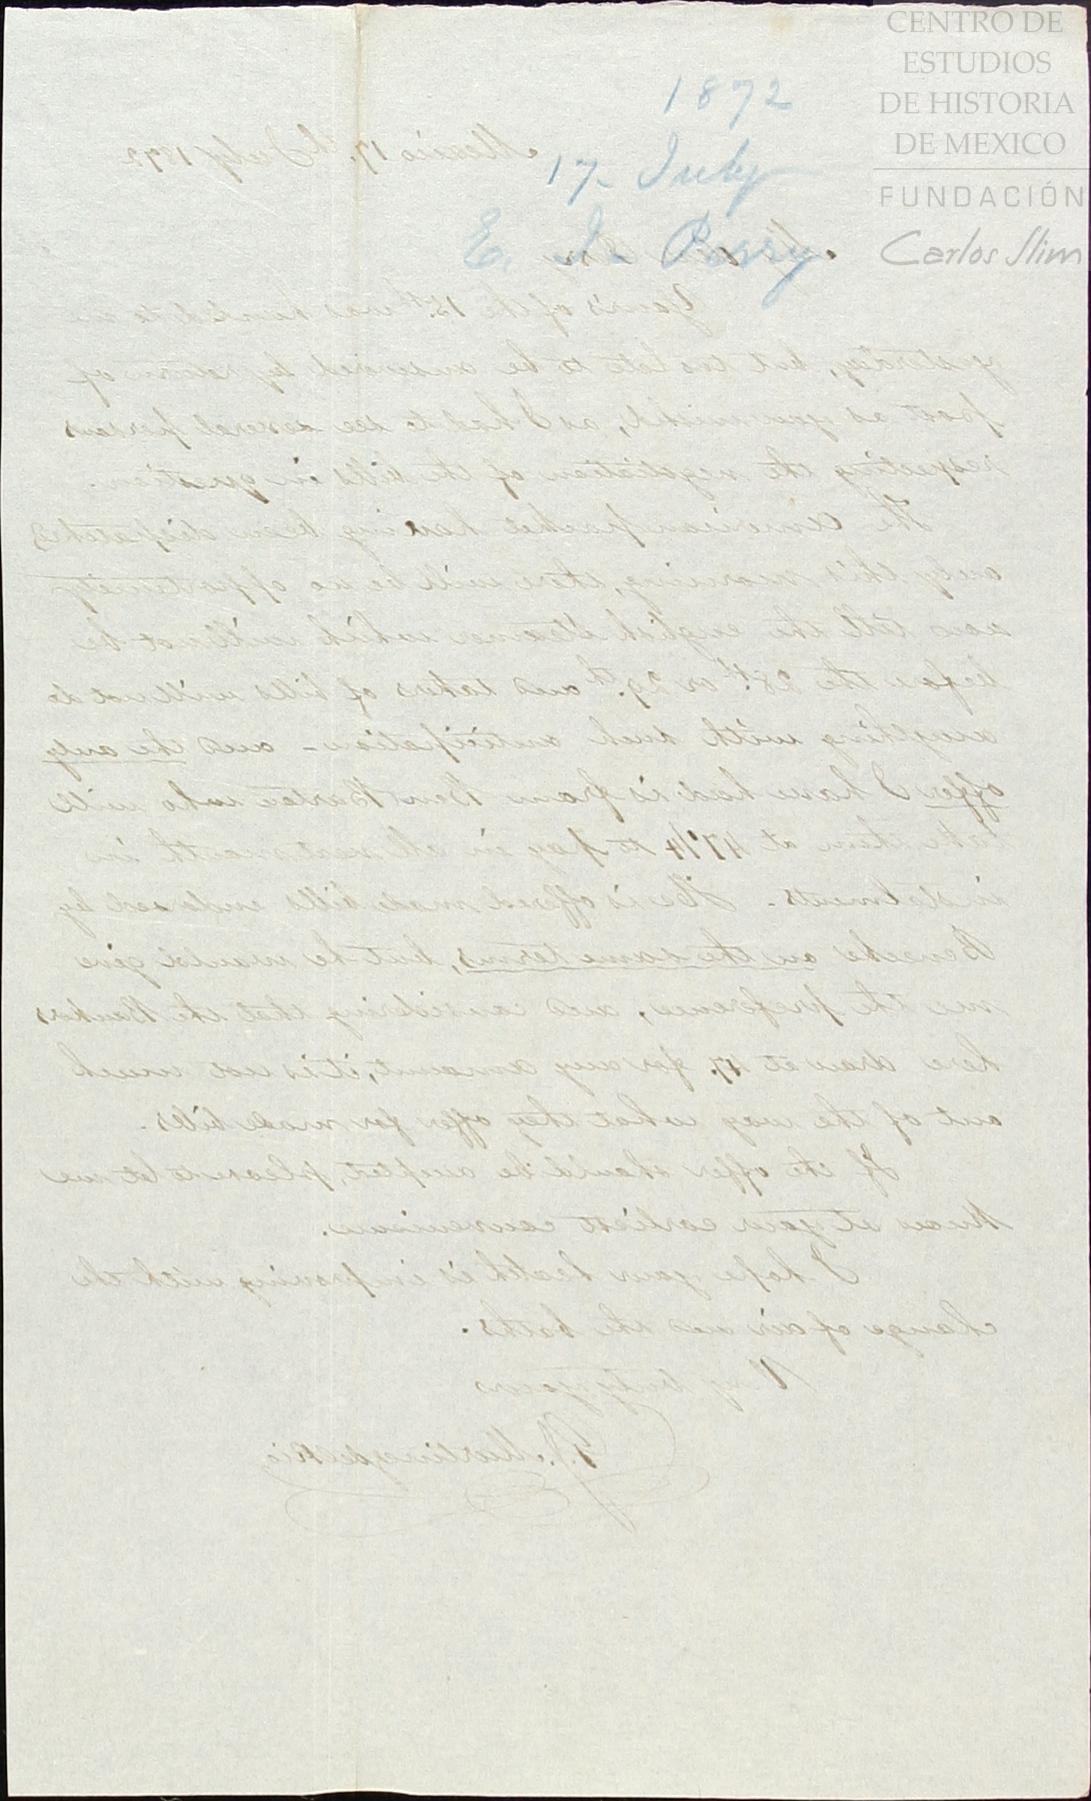 CENTRO DE
ESTUDIOS
DE HISTORIA
DE MEXICO
FUNDACIÓN
Carlos Slim
1872
17. July
E. J. Perry.
Mexico 17th July 1872
Yours of the 15th was handed to me
yesterday, but too late to be answered by return of
post as you wished, as I had to see several persons
respecting the negotiation of the bills in question.
The American packet having been dispatched
only this morning, there will be no opportunity
now till the english steamer which will not be
before the 28th or 29th and takers of bills will not do
anything with such anticipation - and the only
offer I have had is from Ben Barton who will
take them at 47 1/4 to pay in all next month in
instalments. He is offered made bills endorsed by
Benecke on the same terms, but he would give
me the preference, and considering that the Bankers
here draw at 47. for any amount, it is not much
out of the way what they offer for made bills.
If the offer should be accepted, please to let me
know at your earliest convenience.
I hope your health is improving with the
change of air and the baths.
Very truly yours
P. Martinez del Rio